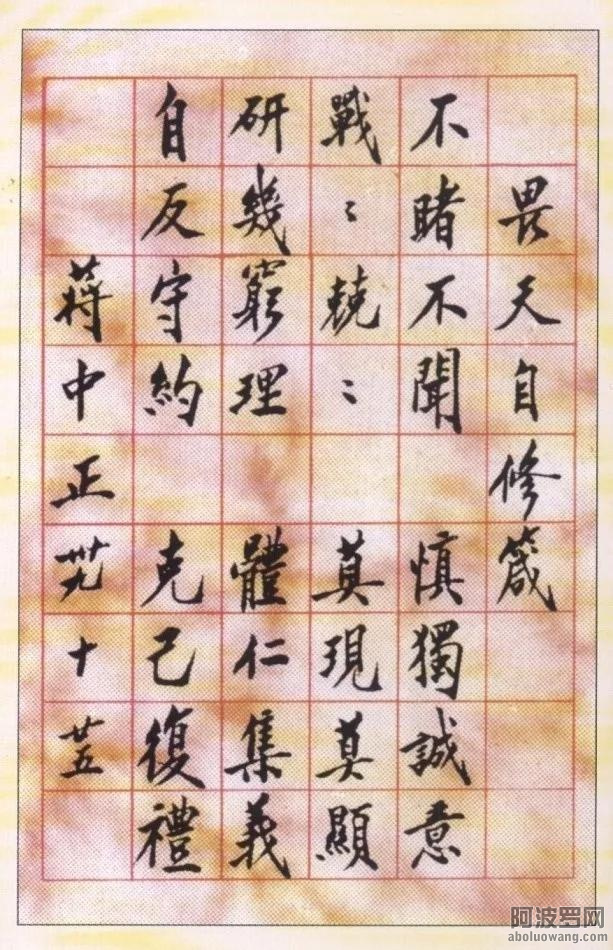 畏天自修箴
不睹不聞 慎獨誠意
戰〻兢〻 莫現莫顯
研幾窮理 體仁集義
自反守約 克己復禮
蔣中正 卅九 十 廿五
阿波罗网
aboluowang.com